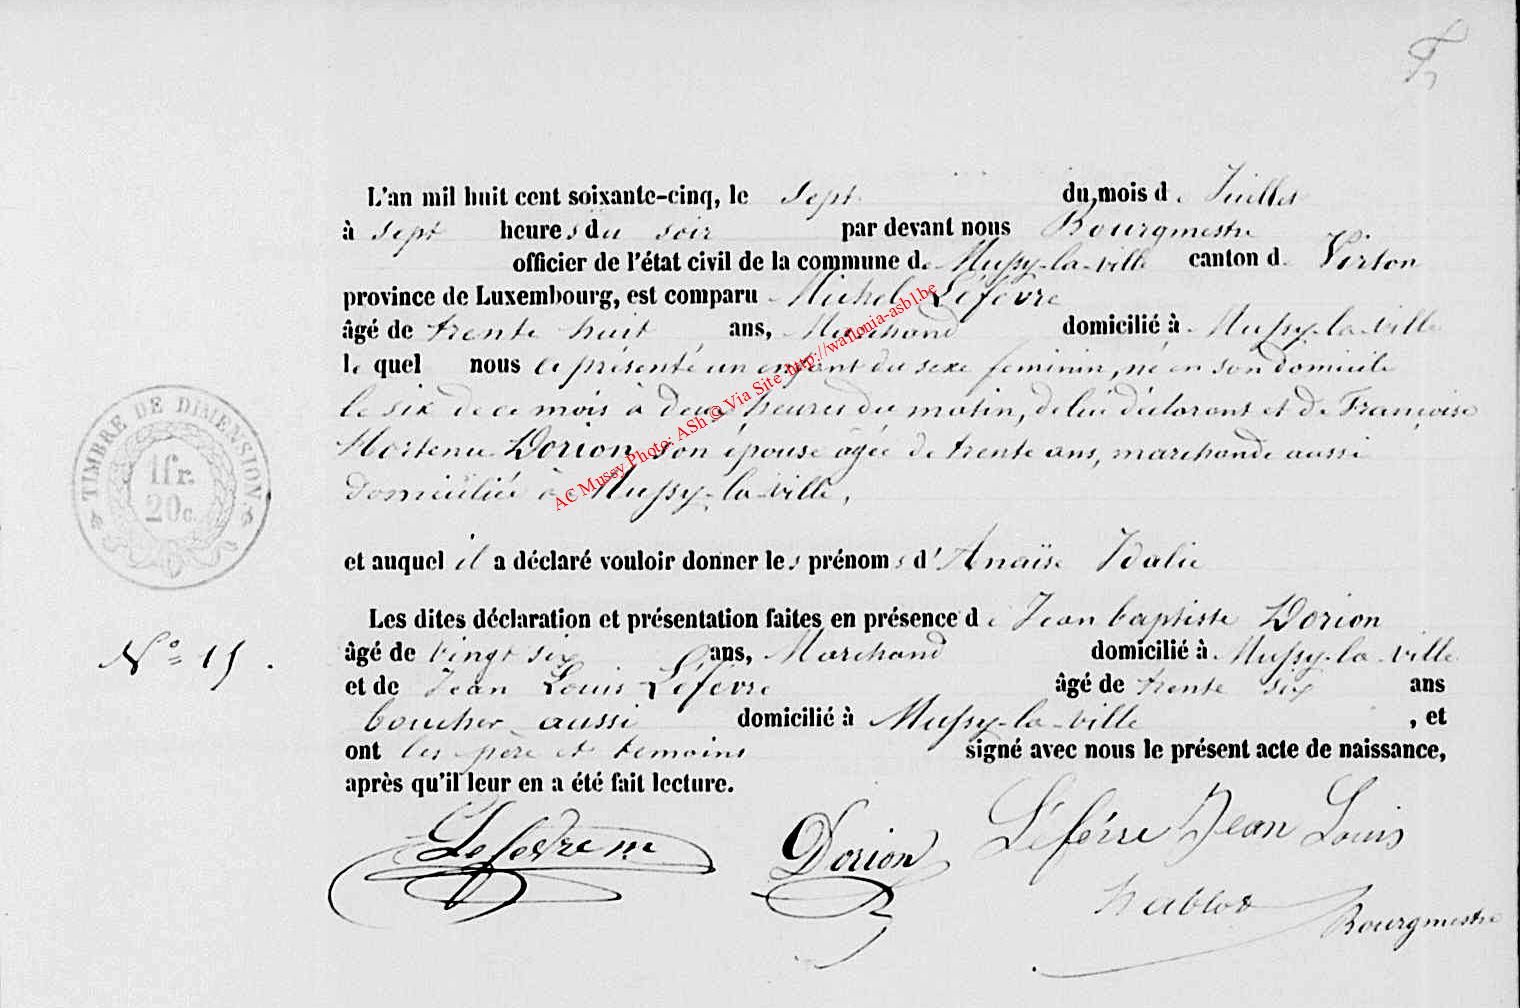 L'an mil huit cent soixante-cinq, le Sept du mois de Juillet
à Sept heures du soir par devant nous Bourgmestre
officier de l'état civil de la commune de Mussy-la-ville canton de Virton
province de Luxembourg, est comparu Michel Léfèvre
âgé de trente huit ans, Marchand domicilié à Mussy-la-ville
le quel nous a présenté un enfant du sexe feminin, né en son domicile
le six de ce mois à deux heures du matin, de lui déclarant et de Françoise
Hortense Dorion son épouse agée de trente ans, marchande aussi
domiciliée à Mussy-la-ville,
et auquel il a déclaré vouloir donner les prénoms d'Anaïse Idalie
Les dites déclaration et présentation faites en présence de Jean baptiste Dorion
N° 15.
âgé de vingt six ans, Marchand domicilié à Mussy-la-ville
et de Jean Louis Léfèvre âgé de trente six ans
boucher aussi domicilié à Mussy-la-ville, et
ont les père et temoins signé avec nous le présent acte de naissance,
après qu'il leur en a été fait lecture.
Lefevre m Dorion Léfévre Jean Louis
Bourgmestre
TIMBRE DE DIMENSION
1 fr.
20 c.
AC Mussy Photo: ASh © Via Site http://wallonia-asbl.be